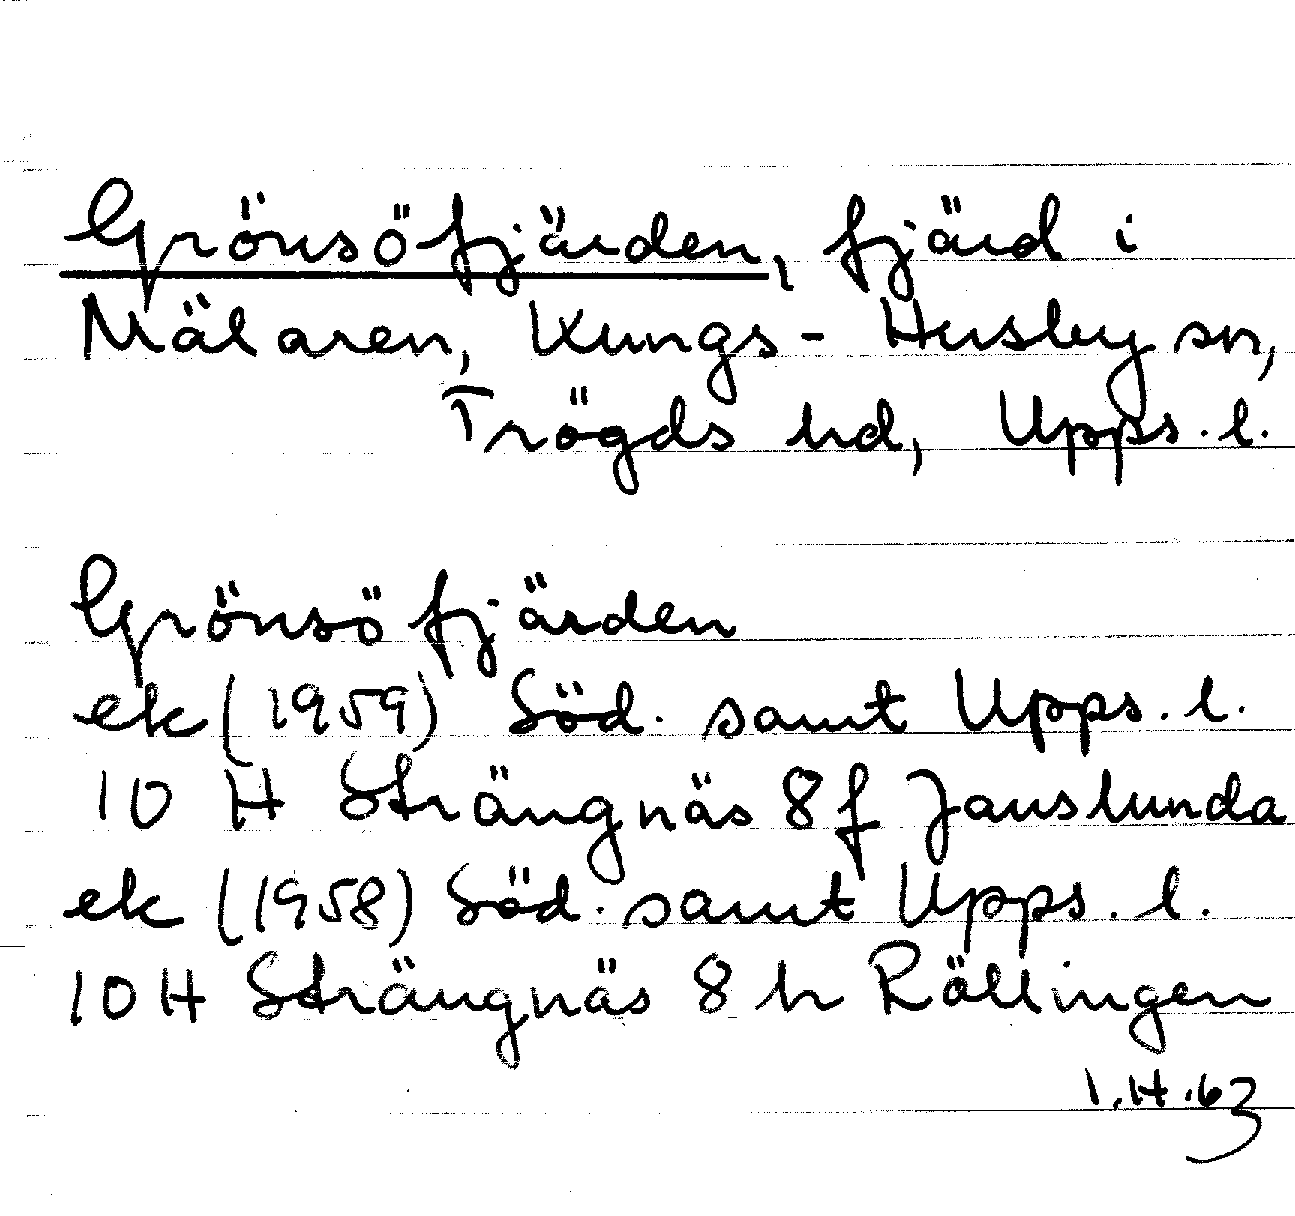 Grönsöfjärden, fjärd i
Mälaren, Kungs-Husby sn,
Trögds hd, Upps. l.
Grönsöfjärden
ek (1959) Söd. samt Upps. l.
10 H Strängnäs 8f Jauslunda
ek (1958) Söd. samt Upps. l.
10H Strängnäs 8h Rällingen